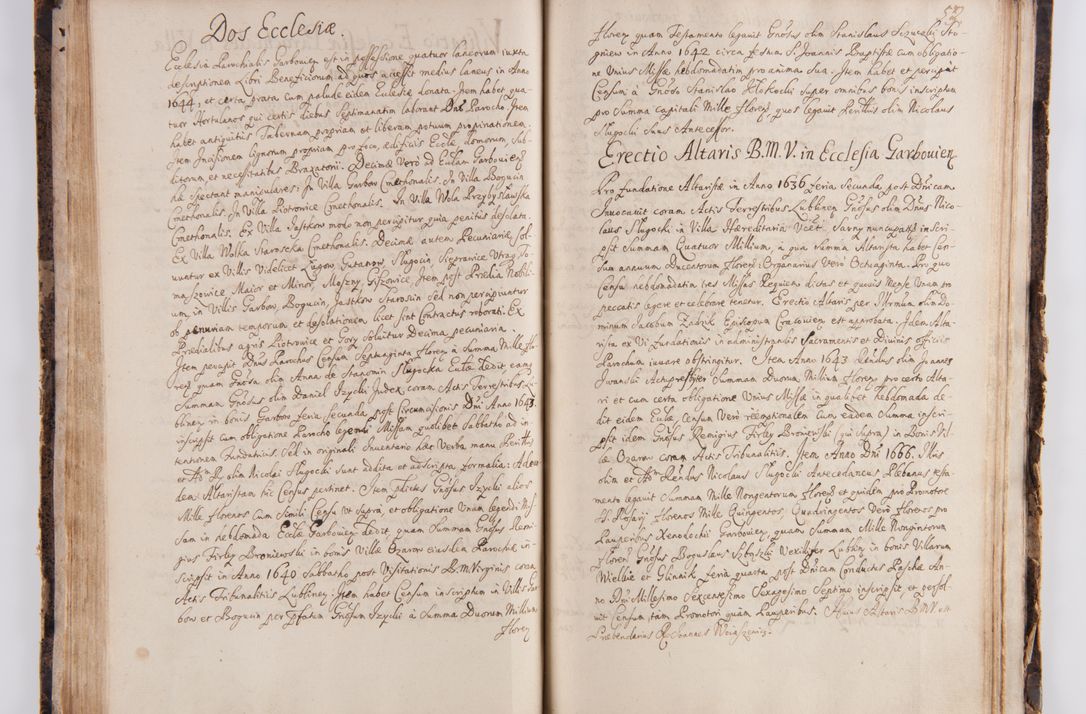 Dos Ecclesiæ.
Ecclesia Parochialis Garbovien est in possessione quatuor laneorum iuxta
descriptionem Libri Beneficiorum ad quos accessit medius laneus in Anno
1644, et certa prata cum palude eidem Ecclesiæ donata. Item habet qua-
tuor Hortulanos qui certis diebus septimanatim laborant Dno Parocho. Item
habet antiquitus Tabernam propriam et liberam potuum propinationem.
Item Incisionem lignorum propriam pro foco, ædificijs Ecclæ, domorum, sub-
ditorum et necessitatis Braxatorij. Decimæ Vero ad Eccłam Garbovien
næ spectant manipulares: In Villa Garbow Cmethonalis. In Villa Bogucin
Cmethonalis. In Villa Piotrowice Cmethonalis. In Villa Wola Przybysławska
Cmethonalis. Ex Villa Jastkow modo non percipitur quia penitus desolata.
Ex Villa Wolka Staroscka Cmethonalis. Decimæ autem Pecuniariæ sol-
vuntur ex Villis Videlicet Ługow, Gutanow, Sługocin, Sieprawice Utraq To-
maszowice Maior et Minor, Moszny, Gizowice, Item post Prædia Nobili-
um, in Villis Garbow, Bogucin, Jastkow Starossin sed non percipiuntur
ob penuriam temporum et desolationem licet sint Contractus roborati. Ex
Prædialibus agris Piotrowice et Gory solvitur Decima pecuniaria.
Item percipit Dnus Parochus Censum Septuaginta Florenz à Summa Mille Flo-
renz quam Gnosa olim Anna de Staxomin Sługocka Eccłæ dedit eam
Summam Gnosus olim Daniel Szycki Judex, coram Actis Terrestribus Lu-
blinen in bonis Garbow feria secunda post Circumcisionis Dni Anno 1643.
inscripsit cum obligatione Parocho legendi Missam quolibet Sabbatho ad in-
tentionem Fundatricis. Sed in originali Inventario hæc Verba manu Perillus
et Adm R. olim Nicolai Sługocki sunt addita et adscripta formalia: Ad eun
dem Altaristam hic Census pertinet. Item prædictus Gnosus Szycki alios
Mille florenos Cum simili Censu ut supra, et obligatione Unam legendi Mis-
sam in hebdomada Ecclæ Garbovien dedit, quam Summam Gnosus Remi-
gius Firley Broniewski in bonis Villæ Ozarow eiusdem Parochiæ in-
scripsit in Anno 1640 Sabbatho post Visitationis B.M.Virginis coram
Actis Tribunalitijs Lublinen. Item habet Censum inscriptum in Villis Gar
bow et Bogucin per pfatum Gnosum Szycki à Summa Duorum Millium
Floren
Floren quam Testamento legavit Gnosus olim Stanislaus Szczucki Sto-
gniew in Anno 1642 circa festum S. Joannis Baptistæ cum obligatio-
ne Unius Missæ hebdomadatim pro anima sua. Item habet et percipit
Censum à Gnoso Stanislao Kłokocki super omnibus bonis inscriptum
pro summa capitali Mille Florenz quos legavit Perillus olim Nicolaus
Sługocki suus Antecessor.
Erectio Altaris B.M.V. in Ecclesia Garbovien
Pro fundatione Altaristæ in Anno 1636 feria secunda post Dnicam
Invocavit coram Actis Terrestribus Lublinen Gnosus olim Dnus Nico-
laus Sługocki in Villa Hæreditaria Ucet. Sarny nuncupatis inscri-
psit Summam Quatuor Millium, à qua summa Altarista habet Cen-
sum annuum Ducentorum Floren: Organarius Vero Octuaginta. Pro quo
Censu hebdomadatim tres Missas Requiem dictas et quovis Mense Unam pro
peccatis legere et celebrare tenetur. Erectio Altaris per Illmum olim Do-
minum Jacobum Zadzik Episcopum Cracovien est approbata. Idem Alta-
rista ex Vi fundationis in administrandis Sacramentis et Divinis officijs
Parochum iuvare obstringitur. Item Anno 1643 Rendus olim Joannes
Iwanski Archipresbyter Summam Duorum Millium Floren pro certo Alta-
ri et cum certa obligatione Unius Missæ in qualibet hebdomada de-
dit eidem Ecclæ Censum Vero reemptionalem cum eadem Summa inscri-
psit idem Gnosus Remigius Firley Broniewski (qui supra) in Bonis Vil-
læ Ozarow coram Actis Tribunalitijs. Item Anno Dni 1666. Illus
olim et Adm Rendus Nicolaus Sługocki Antecedaneus Plebanus testa-
mento legavit Summam Mille Nongentorum Florenz et quidem pro Promotore
SS. Rosarij Florenos Mille Quingentos, Quadringentos Vero florenos pro
Pauperibus Xenodochij Garbovien, quam Summam Mille Nongentorum
Floren Gnosus Boguslaus Zbyszki Vexillifer Lublin in bonis Villarum
Wielkie et Glinnik feria quarta post Dnicam Conductus Paschæ An-
no Dni Millesimo Sexcentesimo Sexagesimo Septimo inscripsit et persol-
vit Censum tam Promotori quam Pauperibus. Huius Altaris B.M.V. est
Præbendarius R. Joannes